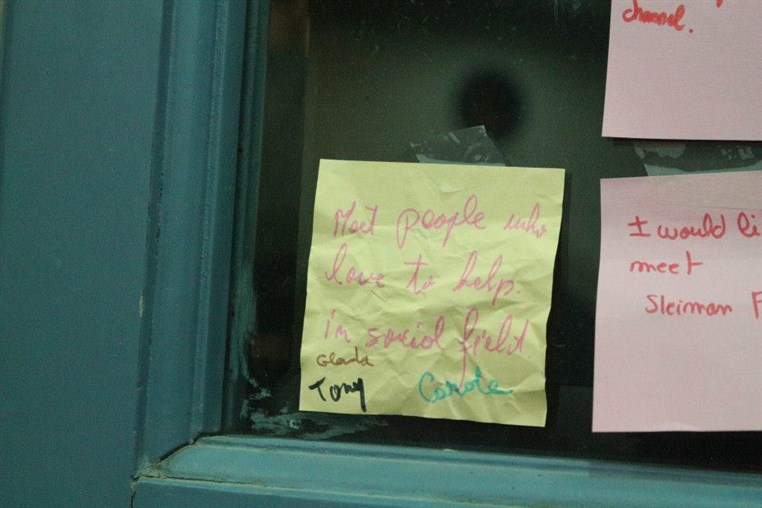 Meet people who
love to help
in social field
Glada
Tony
Carole
channel.
I would li
meet
Sleiman F